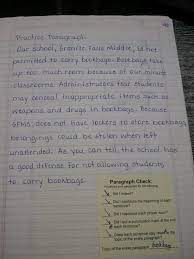 Practice Paragraph:
Our school, Granite Falls Middle, is not
permitted to carry bookbags. Bookbags take
up too much room because of our minute
classrooms. Administrators fear students
may conceal inappropriate items such as
weapons and drugs in bookbags. Because
GFMS does not have lockers to store bookbags
belongings could be stolen when left
unattended. As you can tell the school has
a good defense for not allowing students
to carry bookbags.
Paragraph Check:
Did I indent?
Did I capitalize the beginning of each
sentence?
Did I capitalize each proper noun?
Did I put a punctuation mark at the end
of each sentence?
Does each sentence stay on
the topic of the entire paragraph?
Topic of the entire paragraph: